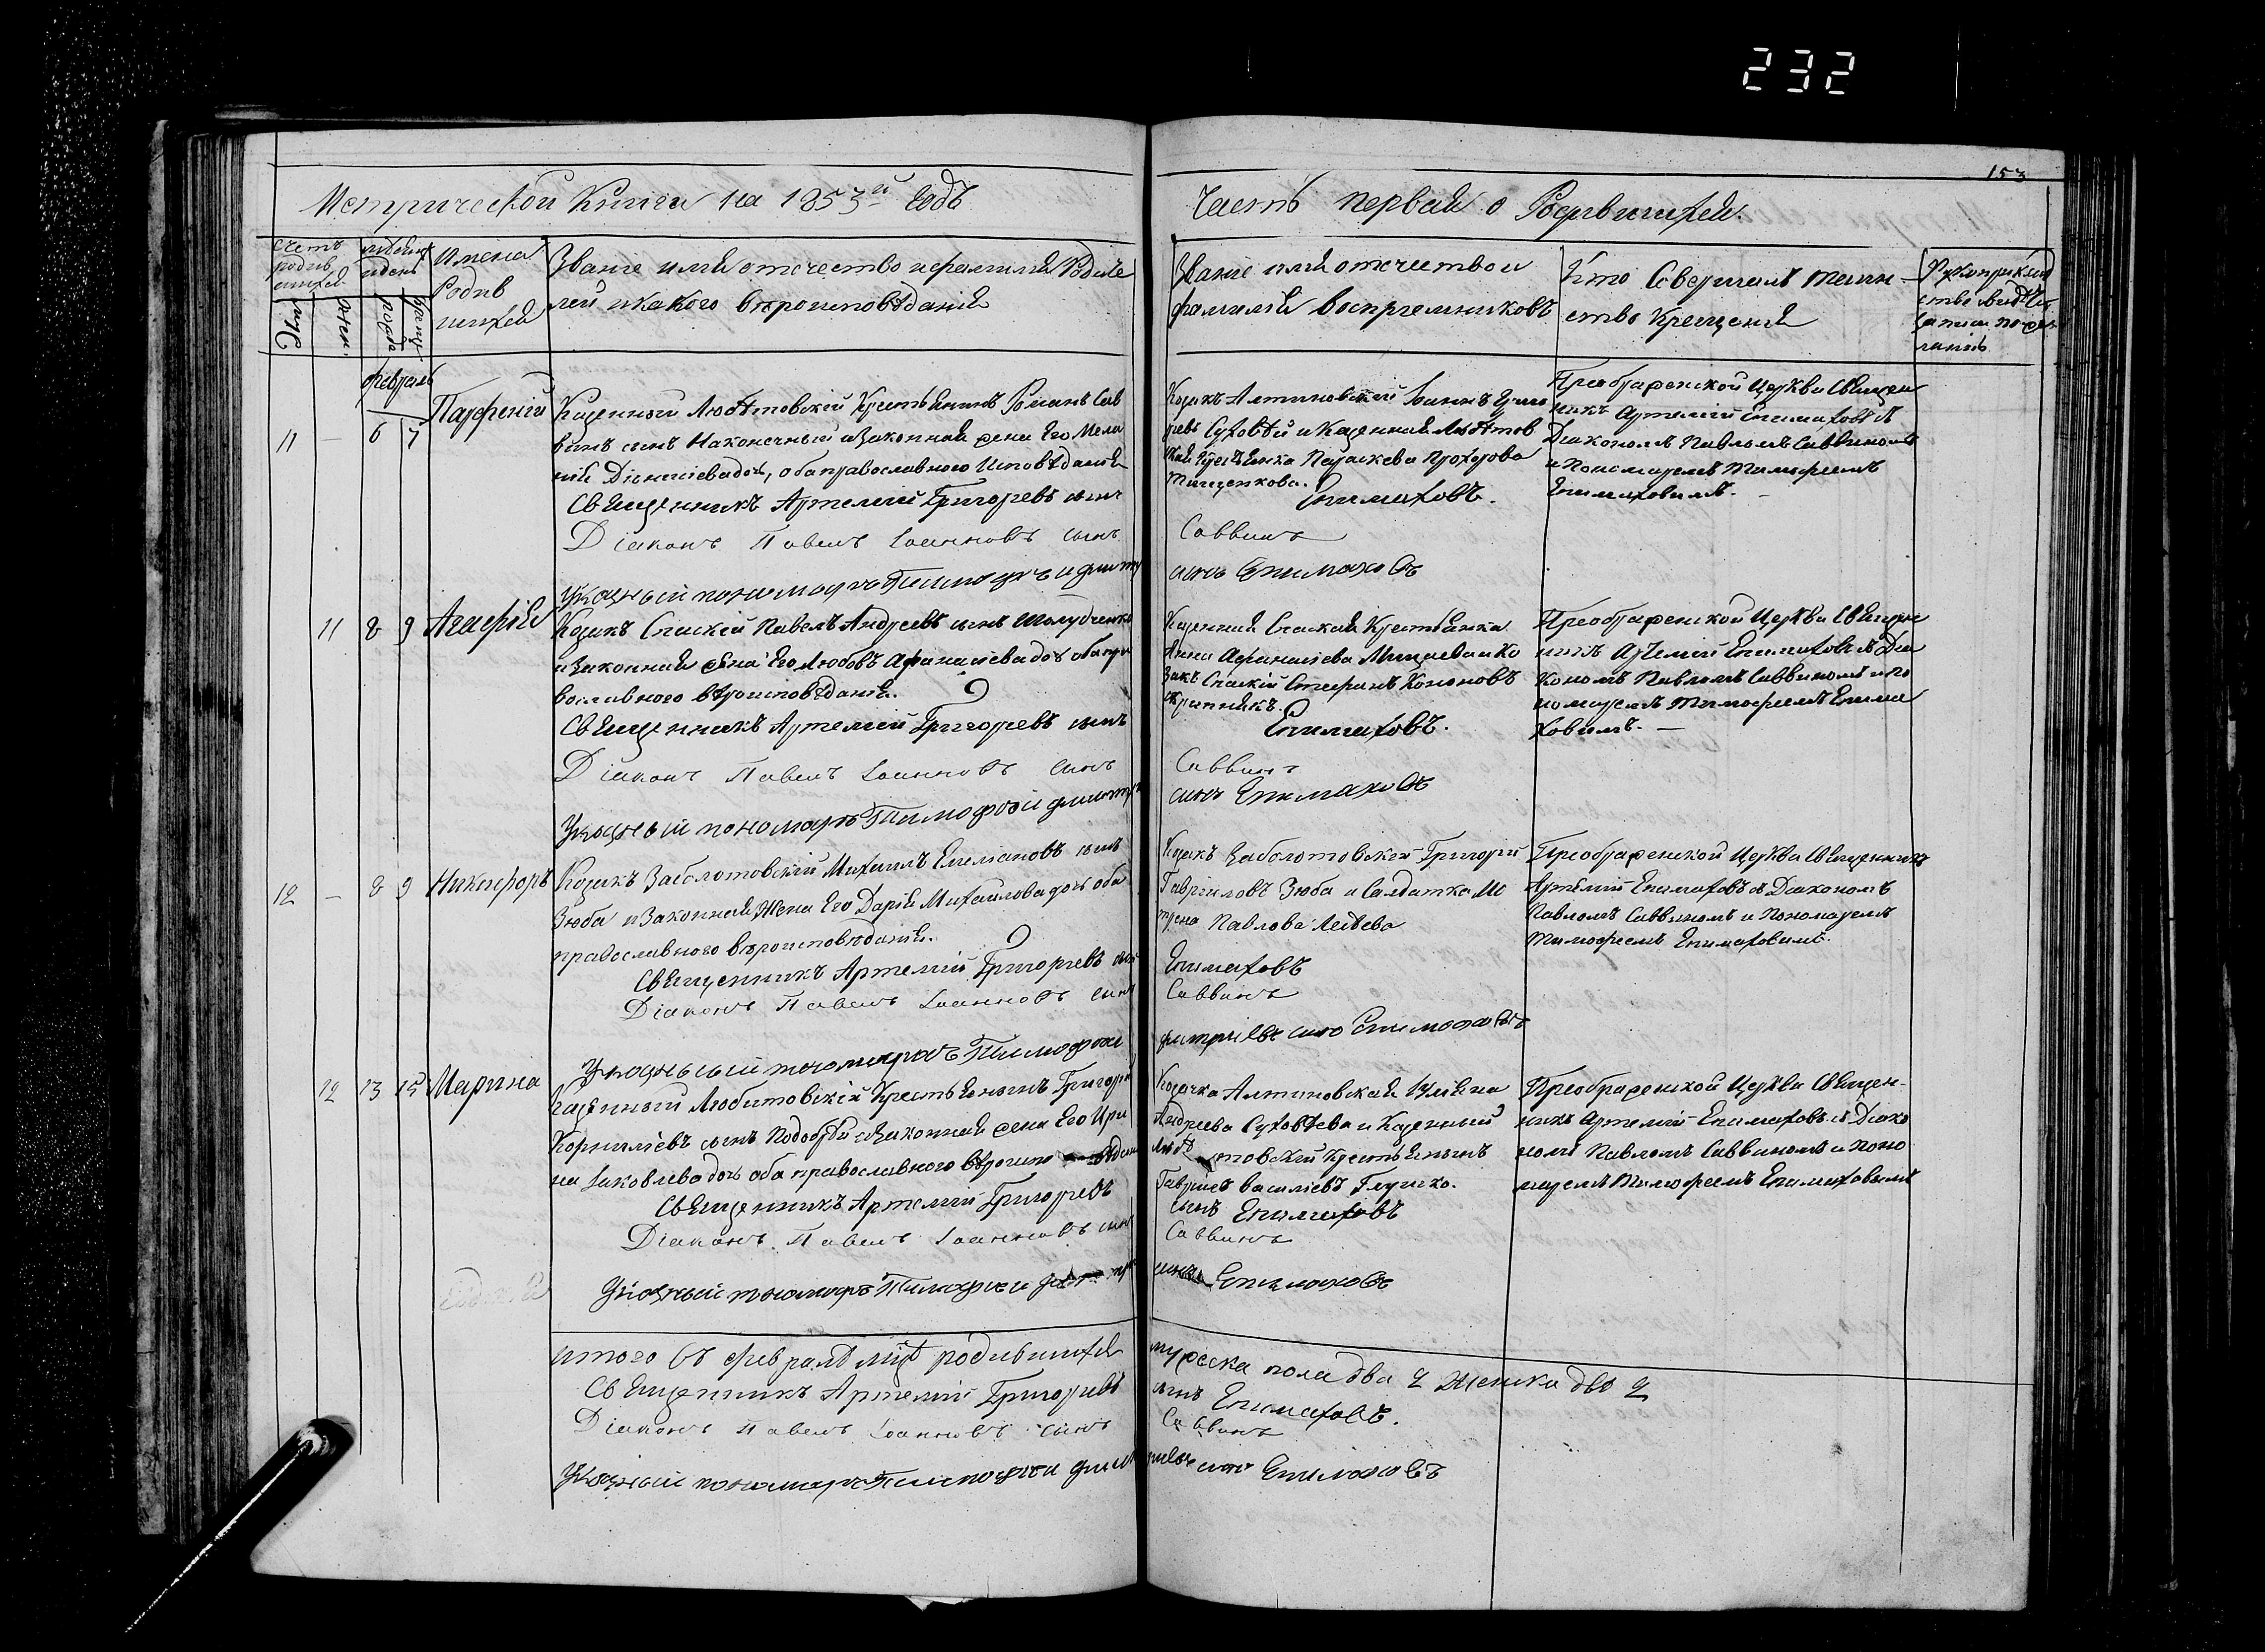 232
153
Метрической Книги на 1853й Годъ
Часть первая о Родившихся.
Счетъ родившихся
Муж.
Жен.
Мѣсяцъ и день
рожд.
крещ.
Имена Родившихся
Званіе имя отчество и фамилія Родите
лей и какого вѣроисповѣданія
Званіе имя отчество и
фамилія воспріемниковъ
Кто Совершалъ таин
ство Крещенія
Рукоприклад
ство свидѣт.
записи по же
ланію
февраль
11 — 6 7 Парфеній
Казенный Любѣтовскій Крестьянинъ Романъ Сав
винъ сынъ Наконечный и Законная жена Его Мела
нія Діонисіева дочь, оба православного Исповѣданія
Священникъ Артемій Григорьевъ сынъ
Діаконъ Павелъ Іоанновъ сынъ
Указный пономарь Тимофей Дмитр
Козакъ Алтиновскій Іоаннъ Григо
рьевъ Суховѣй и Казенная Любѣтов
ская Крестьянка Параскева Прохорова
Тищенкова.
Епимаховъ.
Саввинъ
сынъ Епимаховъ
Преображенской Церкви Священ
никъ Артемій Епимаховъ съ
Діакономъ Павломъ Саввиномъ
и Пономаремъ Тимофеемъ
Епимаховимъ. —
11 8 9 Агафія
Козакъ Спаскій Павелъ Андреевъ сынъ Шолудченко
и Законная жена Его Любовь Афанасіева дочь оба пра
вославного вѣроисповѣданія.
Священникъ Артемій Григорьевъ сынъ
Діаконъ Павелъ Іоанновъ сынъ
Указный пономарь Тимофей Дмитр
Казенная Спаская Крестьянка
Анна Афанасіева Мицаева и Ко
закъ Спаскій Стефанъ Кононовъ
Скрипникъ.
Епимаховъ.
Саввинъ
сынъ Епимаховъ
Преображенской Церкви Священ
никъ Артемій Епимаховъ съ Діа
кономъ Павломъ Саввиномъ и по
номаремъ Тимофеемъ Епима
ховимъ. —
12 — 8 9 Никифоръ
Козакъ Заболотовскій Михаилъ Емеліановъ сынъ
Зюба и Законная Жена Его Дарія Михайлова дочь оба
православного вѣроисповѣданія.
Священникъ Артемій Григорьевъ сынъ
Діаконъ Павелъ Іоанновъ сынъ
Указный пономарь Тимофей
Козакъ Заболотовскій Григорій
Гавриловъ Зюба и Салдатка Мо
трона Павлова
Епимаховъ
Саввинъ
Дмитріевъ сынъ Епимаховъ
Преображенской Церкви Священникъ
Артемій Епимаховъ съ Діакономъ
Павломъ Саввиномъ и Пономаремъ
Тимофеемъ Епимаховимъ.
12 13 15 Марина
Казенный Любитовскій Крестьянинъ Григорій
Корниліевъ сынъ Подобѣй и Законная жена Его Ири
на Іаковлева дочь оба православного вѣроиспо вѣдан
Священникъ Артемій Григорьевъ
Діаконъ Павелъ Іоанновъ сынъ
Указный пономарь Тимофей
Козачка Алтиновская Іуліяна
Андреева Суховѣева и Казенный
Любѣтовскій Крестьянинъ
Гавріилъ Василіевъ Глушко.
сынъ Епимаховъ
Саввинъ
сынъ Епимаховъ
Преображенской Церкви Священ-
никъ Артемій Епимаховъ съ Діако
номъ Павломъ Саввиномъ и Поно
маремъ Тимофеемъ Епимаховимъ
итого въ февралѣ мцѣ родившихся мужеска пола два 2 женска два 2
Священникъ Артемій Григорьевъ сынъ Епимаховъ.
Діаконъ Павелъ Іоанновъ сынъ Саввинъ
Указный пономарь Тимофей Дмитріевъ сынъ Епимаховъ